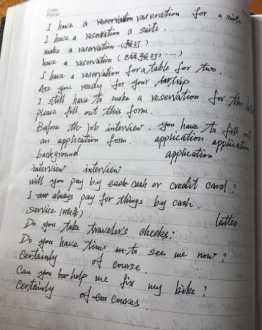 I have a reservation for a suite
I have a reservation a suite.
make a reservation (预订)
have a reservation
I have a reservation for a table for two.
Are you ready for your trip
I still have to make a reservation for the
please fill out this form.
Before the job interview. you have to fill out
an application form application application
background application
interview interview
will you pay by cash or credit card?
I always pay for things by cash.
service
Do you take traveler's checks?
Do you have time to see me now?
certainly of course
Can you help me fix my bike?
Certainly of course